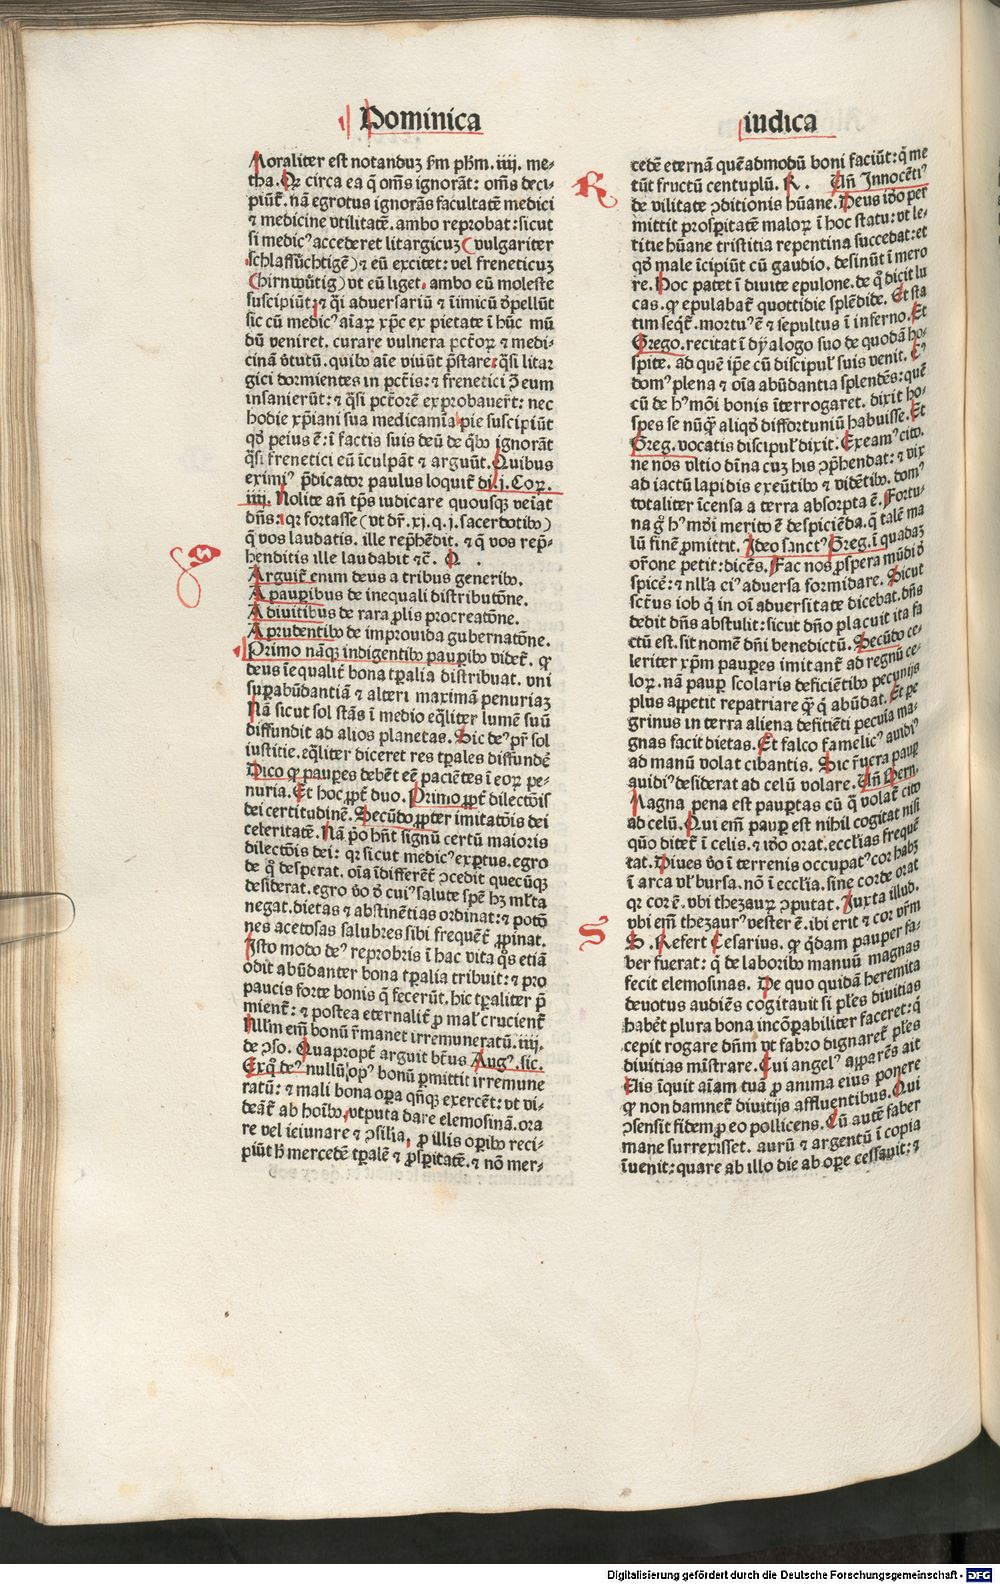 Dominica
iudica
Moraliter est notanduz ẜm pħm. iiij. me⸗
tha. Qꝛ circa ea q̃ oms̃ ignorãt: oms̃ deci⸗
piũt̃. nã egrotus ignorãs facultatẽ medici
⁊ medicine vtilitatẽ. ambo reprobat: sicut
si medicꝰ accederet litargicuz (vulgariter
schlaffsüchtigẽ) ⁊ eũ excitet: vel freneticuz
(hirnwütig) vt eũ liget. ambo eũ moleste
suscipiũt: ⁊ q̃i aduersariũ ⁊ ĩimicũ ꝺ̃pellũt
sic cũ medicꝰ aĩaꝝ xp̃c ex pietate ĩ hũc mũ
dũ veniret. curare vulnera pctõꝝ ⁊ medi⸗
cinã ꝟtutũ. quibꝰ aĩe viuũt p̃stare: q̃si litar
gici dormientes in pctĩs: ⁊ frenetici ꝯ̃ eum
insanierũt: ⁊ q̃si pctõrẽ exprobauer̃t: nec
hodie xp̃iani sua medicamĩa pie suscipiũt
qꝺ̃ peius ẽ: ĩ factis suis deũ de q̃bꝰ ignorãt
q̃si frenetici eũ ĩculpãt ⁊ arguũt. Quibus
eximiꝰ p̃dicator paulus loquit̃ di. j. Coꝝ.
iiij. Nolite añ tp̃s iudicare quousqꝫ veĩat
dñs: qꝛ fortasse (vt dr̃. xj. q. j. sacerdotibꝰ)
q̃ vos laudatis. ille rep̃hẽdit. ⁊ q̃ vos rep̃⸗
henditis ille laudabit ⁊c̃. Q .
Arguit̃ enim deus a tribus generibꝰ.
A paupibus de inequali distributõne.
A diuitibus de rara ꝓlis procreatõne.
A prudentibꝰ de improuida gubernatõne.
Primo nãqꝫ indigentibꝰ paupibꝰ videt̃. ꝙ
deus ĩequalit̃ bona tp̃alia distribuat. vni
supabũdantiã ⁊ alteri maximã penuriaz
Nã sicut sol stãs ĩ medio eq̃liter lumẽ suũ
diffundit ad alios planetas. Sic deꝰ pr̃ sol
iustitie. eq̃liter diceret res tp̃ales diffundẽ
Dico ꝙ paupes debẽt eẽ paciẽtes ĩ eoꝝ pe⸗
nuria. Et hoc ꝓpt̃ duo. Primo ꝓpt̃ dilectõis
dei certitudinẽ. Secũdo ꝓpter imitatõis dei
celeritatẽ. Nã p̃o hñt signũ certũ maioris
dilectõis dei: qꝛ sicut medicꝰ exptus. egro
de q̃ desperat. oĩa ĩdifferẽt̃ ꝯcedit quecũqꝫ
desiderat. egro ꝟo ꝺ̃ cuiꝰ salute spẽ hꝫ ml̃ta
negat. dietas ⁊ abstinẽtias ordinat: ⁊ potõ
nes acetosas salubres sibi frequẽt̃ ꝓpinat.
Isto modo deꝰ reprobris ĩ hac vita q̃s etiã
odit abũdanter bona tp̃alia tribuit: ⁊ pro
paucis forte bonis q̃ fecerũt. hic tp̃aliter p̃
mient̃: ⁊ postea eternalit̃ ꝓ mal̃ crucient̃
Nllm̃ em̃ bonũ r̃manet irremuneratũ. iiij.
de ꝯso. Quapropt̃ arguit bt̃us Augꝰ. sic.
Exq̃ deꝰ nullũ opꝰ bonũ pmittit irremune
ratũ: ⁊ mali bona opa qñqꝫ exercẽt: vt vi⸗
deãt̃ ab hoĩbꝰ, vtputa dare elemosinã. ora
re vel ieiunare ⁊ ꝯsilia, ꝓ illis opibꝰ reci⸗
piũt ħ mercedẽ tp̃alẽ ⁊ ꝓspitatẽ. ⁊ nõ mer⸗
cedẽ eternã quẽadmodũ boni faciũt: q̃ me
tũt fructũ centuplũ. R . Uñ Innocẽtiꝰ
de vilitate ꝯditionis hũane. Deus iꝺ̃o per
mittit prospitatẽ maloꝝ ĩ hoc statu: vt le⸗
titie hũane tristitia repentina succedat: et
qꝺ̃ male ĩcipiũt cũ gaudio. desinũt ĩ mero
re. Hoc patet ĩ diuite epulone. de q̃ dicit lu
cas. ꝙ epulabat̃ quottidie splẽdide. Et sta
tim seqt̃. mortuꝰ ẽ ⁊ sepultus ĩ inferno. Et
Grego. recitat ĩ dyalogo suo de quodã ho⸗
spite. ad quẽ ip̃e cũ discipul̃ suis venit. Cꝰ
domꝰ plena ⁊ oĩa abũdantia splendẽs: quẽ
cũ de hꝰ mõi bonis ĩterrogaret. dixit ho⸗
spes se nũq̃ aliqꝺ̃ diffortuniũ habuisse. Et
Greg. vocatis discipul̃ dixit. Exeamꝰ cito.
ne nos vltio dĩna cuz his ꝯp̃hendat: ⁊ vix
ad iactũ lapidis exeũtibꝰ ⁊ vidẽtibꝰ. domꝰ
totaliter ĩcensa a terra absorpta ẽ. Fortu⸗
na g̃ hꝰ mõi merito ẽ despiciẽda. q̃ talẽ ma
lũ finẽ ꝓmittit. Ideo sanctꝰ Greg. ĩ quadaz
or̃one petit: dicẽs. Fac nos ꝓspera mũdi ꝺ̃
spicẽ: ⁊ nlla ciꝰ aduersa formidare. Sicut
sct̃us iob q̃ in oĩ aduersitate dicebat. dñs
dedit dñs abstulit: sicut dño placuit ita fa
ctũ est. sit nomẽ dñi benedictũ. Secũdo ce⸗
leriter xp̃m paupes imitant̃ ad regnũ ce⸗
loꝝ. nã paup scolaris deficiẽtibꝰ pecunijs
plus appetit repatriare q̃ q̃ abũdat. Et pe
grinus in terra aliena defitiẽti pecuĩa ma⸗
gnas facit dietas. Et falco famelicꝰ auidiꝰ
ad manũ volat cibantis. Sic r̃uera paup
auidiꝰ desiderat ad celũ volare. Uñ Bern.
Magna pena est pauptas cũ q̃ volat̃ cito
ad celũ. Qui em̃ paup est nihil cogitat nisi
quõ ditet̃ ĩ celis. ⁊ iꝺ̃o orat. eccl̃ias frequẽ
tat. Diues ꝟo ĩ terrenis occupatꝰ cor habꝫ
ĩ arca vl̃ bursa. nõ ĩ eccl̃ia. sine corde orat
qꝛ cor ẽ. vbi thezaurꝝ ꝯputat. Iuxta illud.
vbi em̃ thezaurꝰ vester ẽ. ibi erit ⁊ cor vr̃m
S. Refert Cesarius. ꝙ q̃dam pauper fa⸗
ber fuerat: q̃ de laboribꝰ manuũ magnas
fecit elemosinas. De quo quidã heremita
deuotus audiẽs cogitauit si pl̃es diuitias
habẽt plura bona incõpabiliter faceret: q̃
cepit rogare dñm vt fabro dignaret̃ pl̃es
diuitias mĩstrare. Cui angelꝰ apparẽs ait
Uis ĩquit aĩam tuã ꝓ anima eius ponere
ꝙ non damnet̃ diuitijs affluentibus. Qui
ꝯsensit fidem ꝓ eo pollicens. Cũ autẽ faber
mane surrexisset. aurũ ⁊ argentũ ĩ copia
ĩuenit: quare ab illo die ab ope cessauit: ⁊
R
S
Digitalisierung gefördert durch die Deutsche Forschungsgemeinschaft - DFG